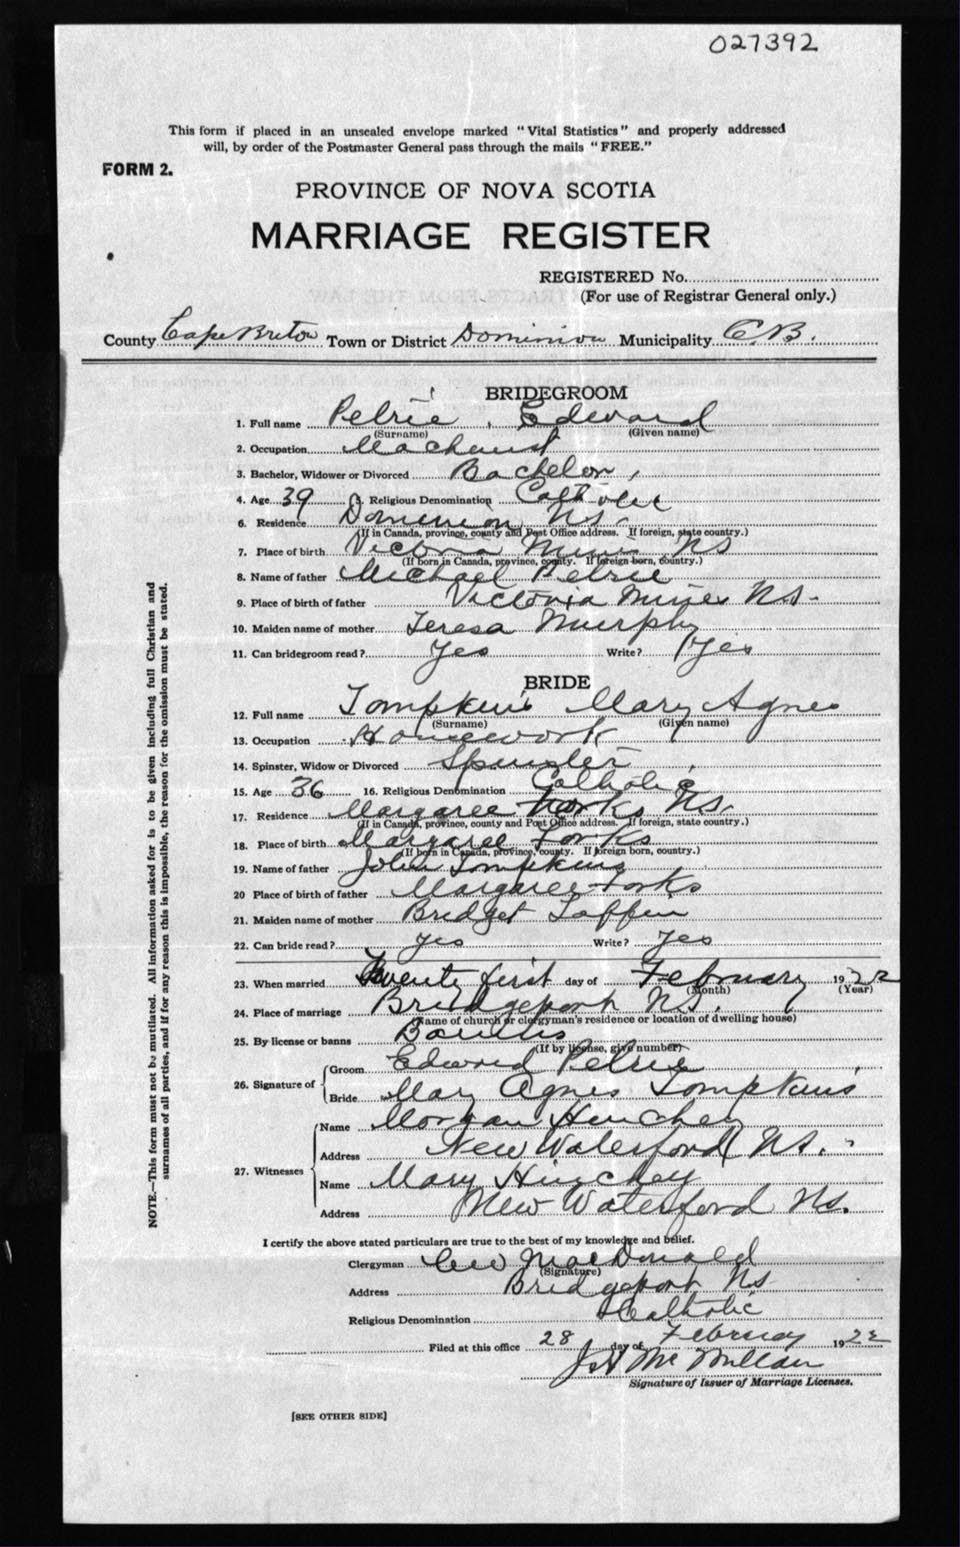 027392
This form if placed in an unsealed envelope marked "Vital Statistics" and properly addressed
will, by order of the Postmaster General pass through the mails "FREE."
FORM 2.
PROVINCE OF NOVA SCOTIA
MARRIAGE REGISTER
REGISTERED No.
(For use of Registrar General only.)
County Cape Breton Town or District Dominion Municipality C.B.
BRIDEGROOM
1. Full name Petrie, Edward
(Surname) (Given name)
2. Occupation Machinist
3. Bachelor, Widower or Divorced Bachelor
4. Age 39 5. Religious Denomination Catholic
6. Residence Dominion NS.
(If in Canada, province, county and Post Office address. If foreign, state country.)
7. Place of birth Victoria Mines NS
(If born in Canada, province, county. If foreign born, country.)
8. Name of father Michael Petrie
9. Place of birth of father Victoria Mines N.S.
10. Maiden name of mother Teresa Murphy
11. Can bridegroom read? Yes Write? Yes
BRIDE
12. Full name Tompkins Mary Agnes
(Surname) (Given name)
13. Occupation Housework
14. Spinster, Widow or Divorced Spinster
15. Age 36 16. Religious Denomination Catholic
17. Residence Margaree Forks NS.
(If in Canada, province, county and Post Office address. If foreign, state country.)
18. Place of birth Margaree Forks
(If born in Canada, province, county. If foreign born, country.)
19. Name of father John Tompkins
20 Place of birth of father Margaree Forks
21. Maiden name of mother Bridget
22. Can bride read? yes Write? yes
23. When married Twenty first day of February 1922
(Month) (Year)
24. Place of marriage Bridgeport N.S.
(Name of church or clergyman's residence or location of dwelling house)
25. By license or banns Banns
(If by license, give number)
26. Signature of Groom Edward Petrie
Bride Mary Agnes Tompkins
27. Witnesses Name Morgan Hinchey
Address New Waterford NS.
Name Mary Hinchey
Address New Waterford NS.
I certify the above stated particulars are true to the best of my knowledge and belief.
Clergyman MacDonald
(Signature)
Address Bridgeport NS
Religious Denomination Catholic
Filed at this office 28 day of February 1922
McMillan
Signature of Issuer of Marriage Licenses.
[SEE OTHER SIDE]
NOTE.—This form must not be mutilated. All information asked for is to be given including full Christian and
surnames of all parties, and if for any reason this is impossible, the reason for the omission must be stated.